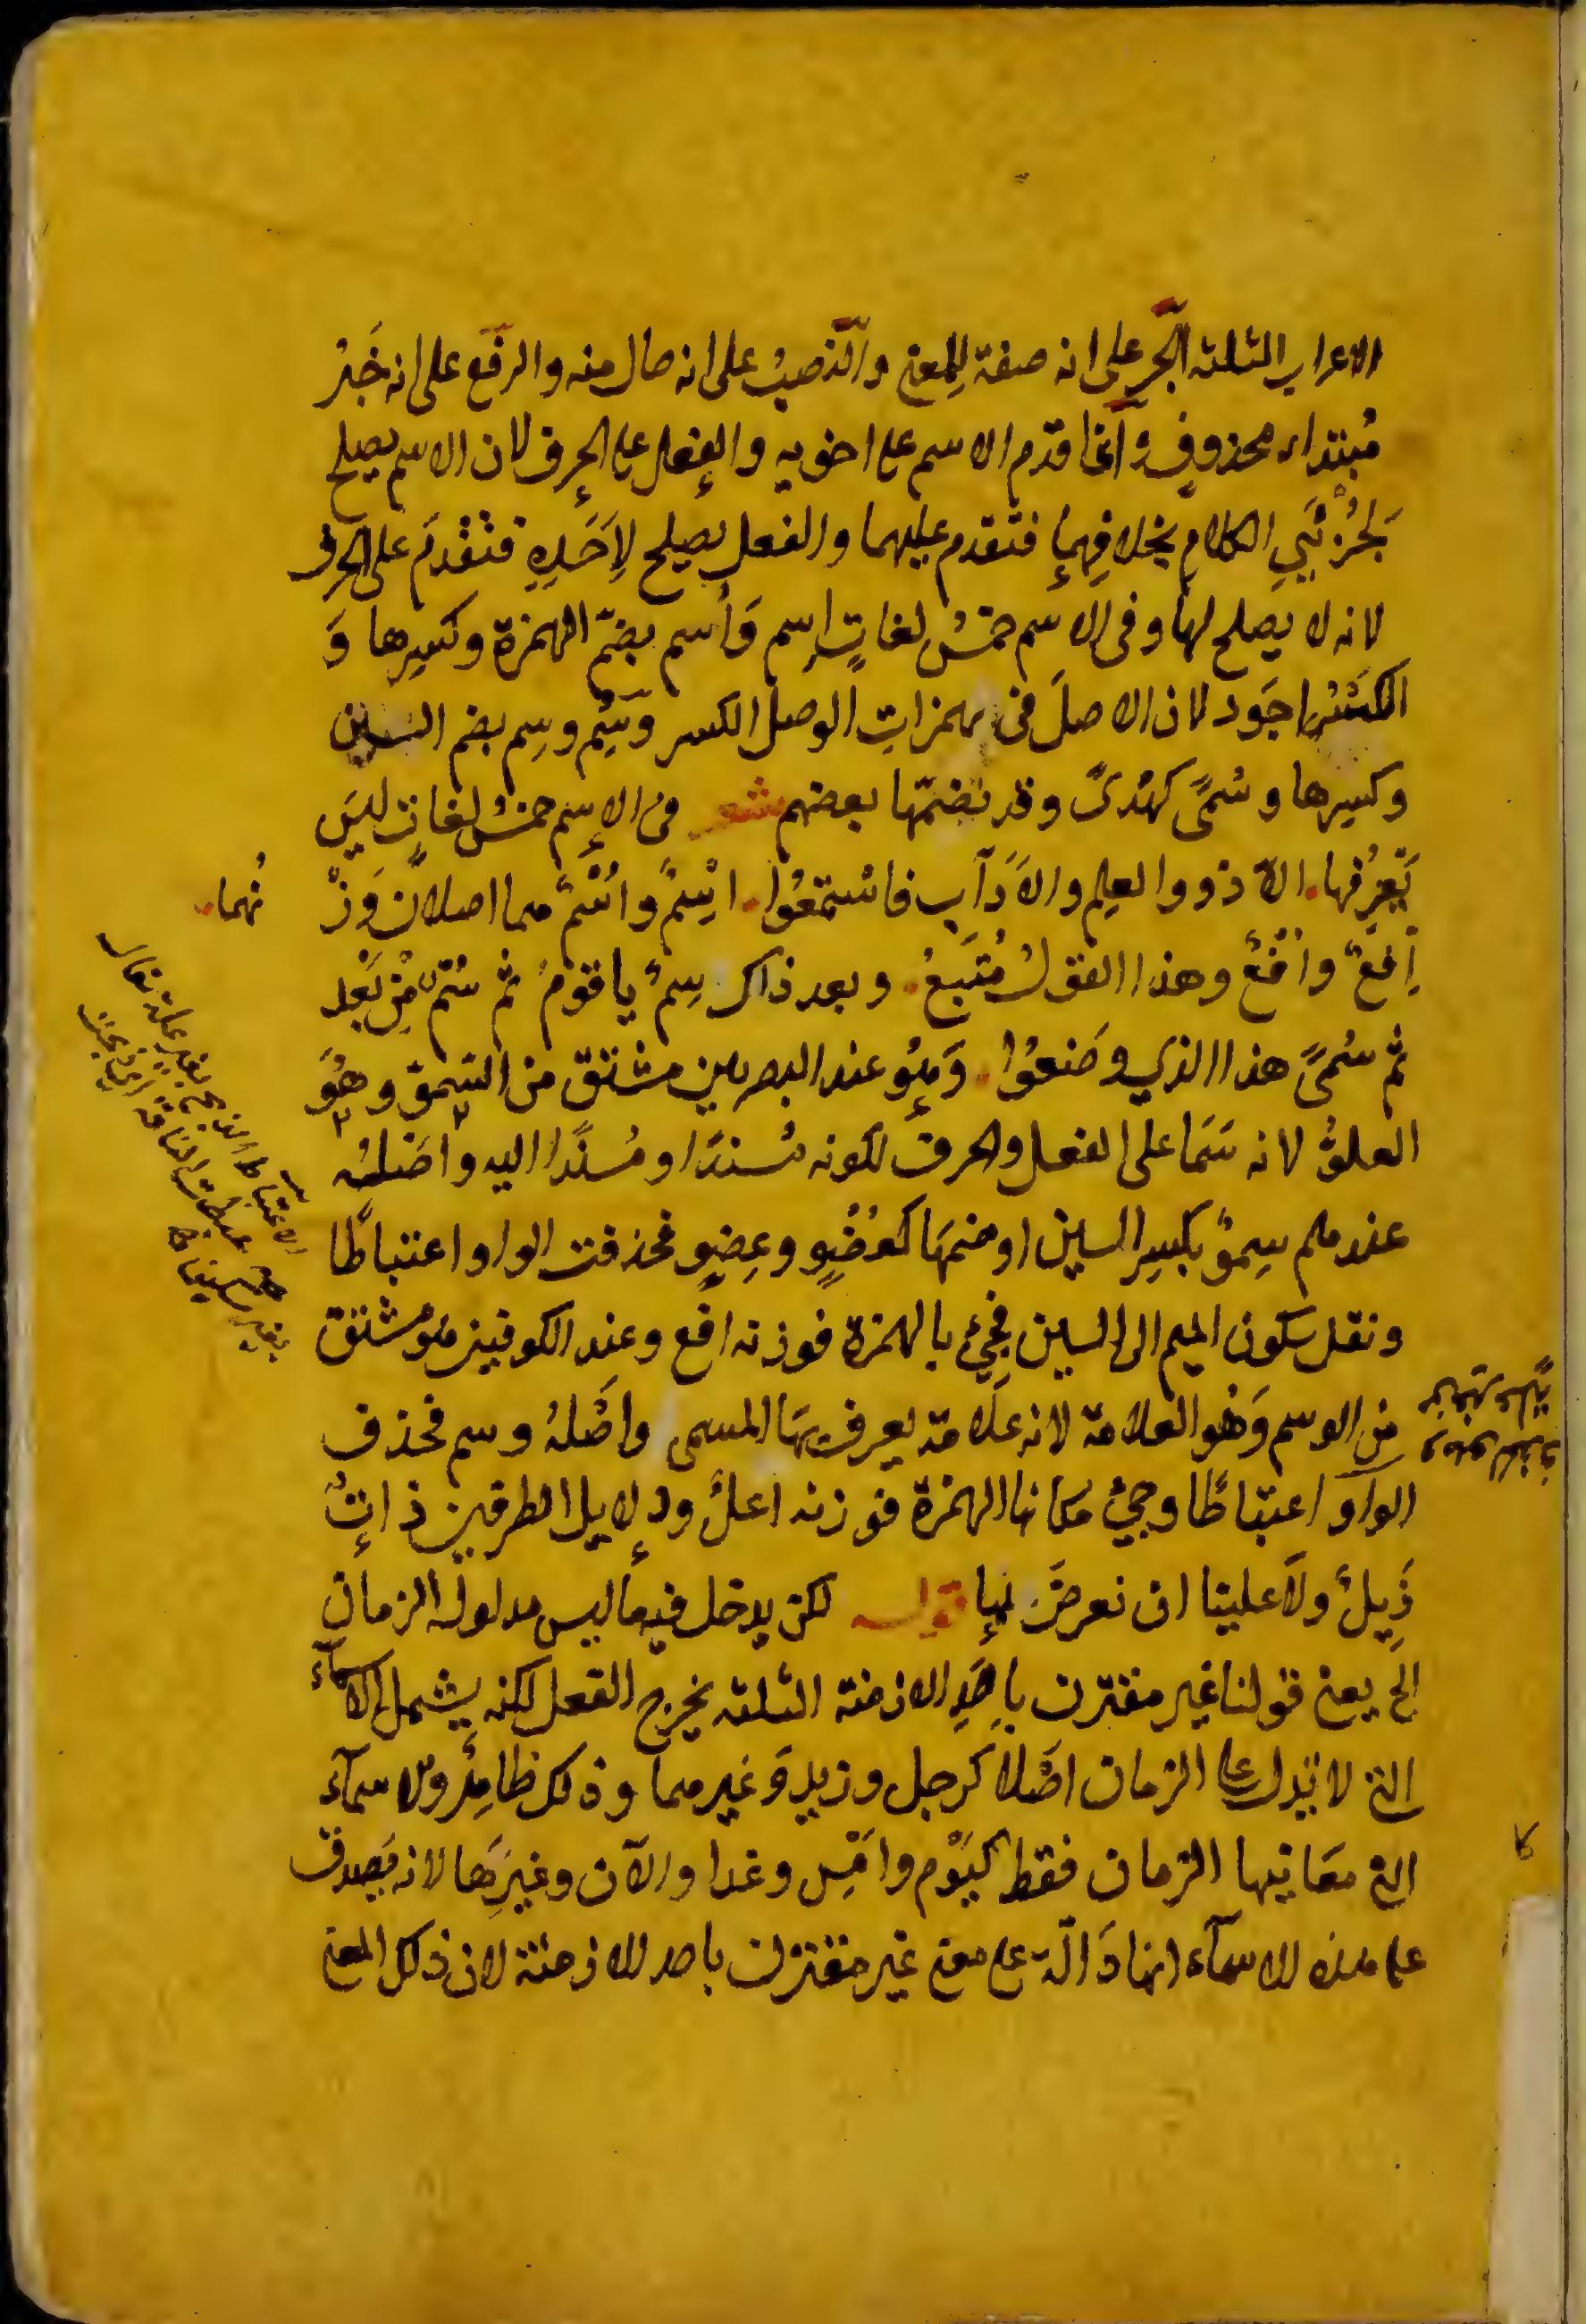 الاعراب الثلثة الجر على انه صفة للمعنى والنصب على انه حال منه والرفع على انه خَبَرُ
مُبتداء محذوفٍ وانما قدم الاسم على اخويه والفعل على الحرف لان الاسم يصلح
لجُزئَيِ الكلام بخلافِهما فتقدم عليهما والفعل يصلح لِاَحَدِهِ فتقدمَ على الحرف
لانه لا يصلح لها وفى الاسم خمسُ لغاتٍ اِسم وَاُسم بضمّ الهمزة وكسرها وَ
الكسْرُ اجَود لان الاصلَ فى همزاتِ الوصل الكسر وسُِم وسِم بضم السين
وكسرها وسُمىً كهُدىً وقد نضمّها بعضهم شعر فى الاِسم خمسُ لغاتٍ ليسَ
تَعِرفها الاّ ذووا العِلم والاَدَآب فاسْتمعُوا اِسْمٌ واُسْمٌ هما اصلان وَزْ
نُهما
اِفعٌ واُفعٌ وهذا القولُ مُتبَعُ وبعد ذاك سِمٌ يا قومُ ثم سُمٌ مِن بَعد
ثم سُمىً هذا الذي وَضعُوا وَهُو عند البصريين مشتق من السمو وهُوَ
العلوُّ لانه سَمَا على الفعل والحرف لكونه مُسندًا ومُسنَدًا اليه واصَلهُ
عندهم سِموٌ بكسِر السين او ضمهَا كعُضْوٍ وعِضوٍ فحذفت الواو اعتباطًا
ونقل سكون الميم الى السين فجىء بالهمزة فوزنه افع وعند الكوفيين هو مُشتق
من الوسم وَهُو العلامة لانه علَامة يعرف بهَا المسمى واصْلهُ وسم فحذف
الواو اعتباطًا وجىء مكانها الهمزة فوزنه اعلٌ ودلايل الطرفين ذاتُ
ذَيلٍ ولاَ علينا ان نعرضَ لها قوله لكن يدخل فيه ما ليس مدلوله الزمان
الخ يعنى قولنا غير مقترن باحَدِ الازمنة الثلثة يخرج الفعل لكنه يشمل الاسمآء
التى لا تدل على الزمان اصْلا كرجل وزيد وَغيرهما وذلك ظاهِرٌ والاسمآء
التى معَانيها الزمان فقط كيَوْم وامَسِ وغدا والآن وغيرهَا لانه يَصدق
على هذه الاسمآء انها دَالّة على معنى غير مقترن باحد الازمنة لان ذلك المعنى